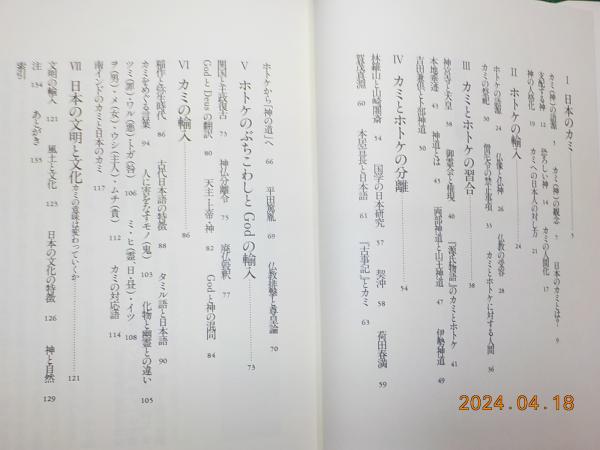 I 日本のカミ 3
カミ(神)の語源 5 カミ(神)の観念 7 日本のカミとは? 9
支配する神 12 恐ろしい神 14 カミの人間化 17
神の人格化 19 カミへの日本人の対し方 21
II ホトケの輸入 24
ホトケの語源 24 仏像と仏神 26 仏教の受容 28
カミの祭祀 30 僧尼令の禁止事項 33 カミとホトケに対する人間 36
III カミとホトケの習合 38
神宮寺と大皇 38 御霊会と権現 40 『源氏物語』のカミとホトケ 41
本地垂迹 43 神道とは 45 両部神道と山王神道 47 伊勢神道 49
吉田兼倶と卜部神道 50
IV カミとホトケの分離 54
林羅山と山崎闇斎 54 国学の日本研究 57 契沖 58 荷田春満 59
賀茂真淵 60 本居宣長と日本語 61 『古事記』とカミ 63
ホトケから「神の道」へ 66 平田篤胤 69 仏教排撃と尊皇論 70
V ホトケのぶちこわしと God の輸入 73
開国と王政復古 73 神仏分離令 75 廃仏毀釈 77
God と Deus の翻訳 80 天主・上帝・神 82 God と神の混同 84
VI カミの輸入 86
稲作と弥生時代 86 古代日本語の特徴 88 タミル語と日本語 90
カミをめぐる言葉 94 人に害をなすモノ(鬼) 103 化物と幽霊との違い 105
ツミ(罪)・ワル(悪)・トガ(咎) 106 ミ・ヒ(霊・日・昼)・イツ 108
ヲ(男)・メ(女)・ウシ(主人)・ムチ(貴) 112 カミの対応語 114
南インドのカミと日本のカミ 117
VII 日本の文明と文化 カミの意味は変わっていくか 121
文明の輸入 121 風土と文化 125 日本の文化の特徴 126 神と自然 129
注 134 あとがき 155
索引
2024.04.18